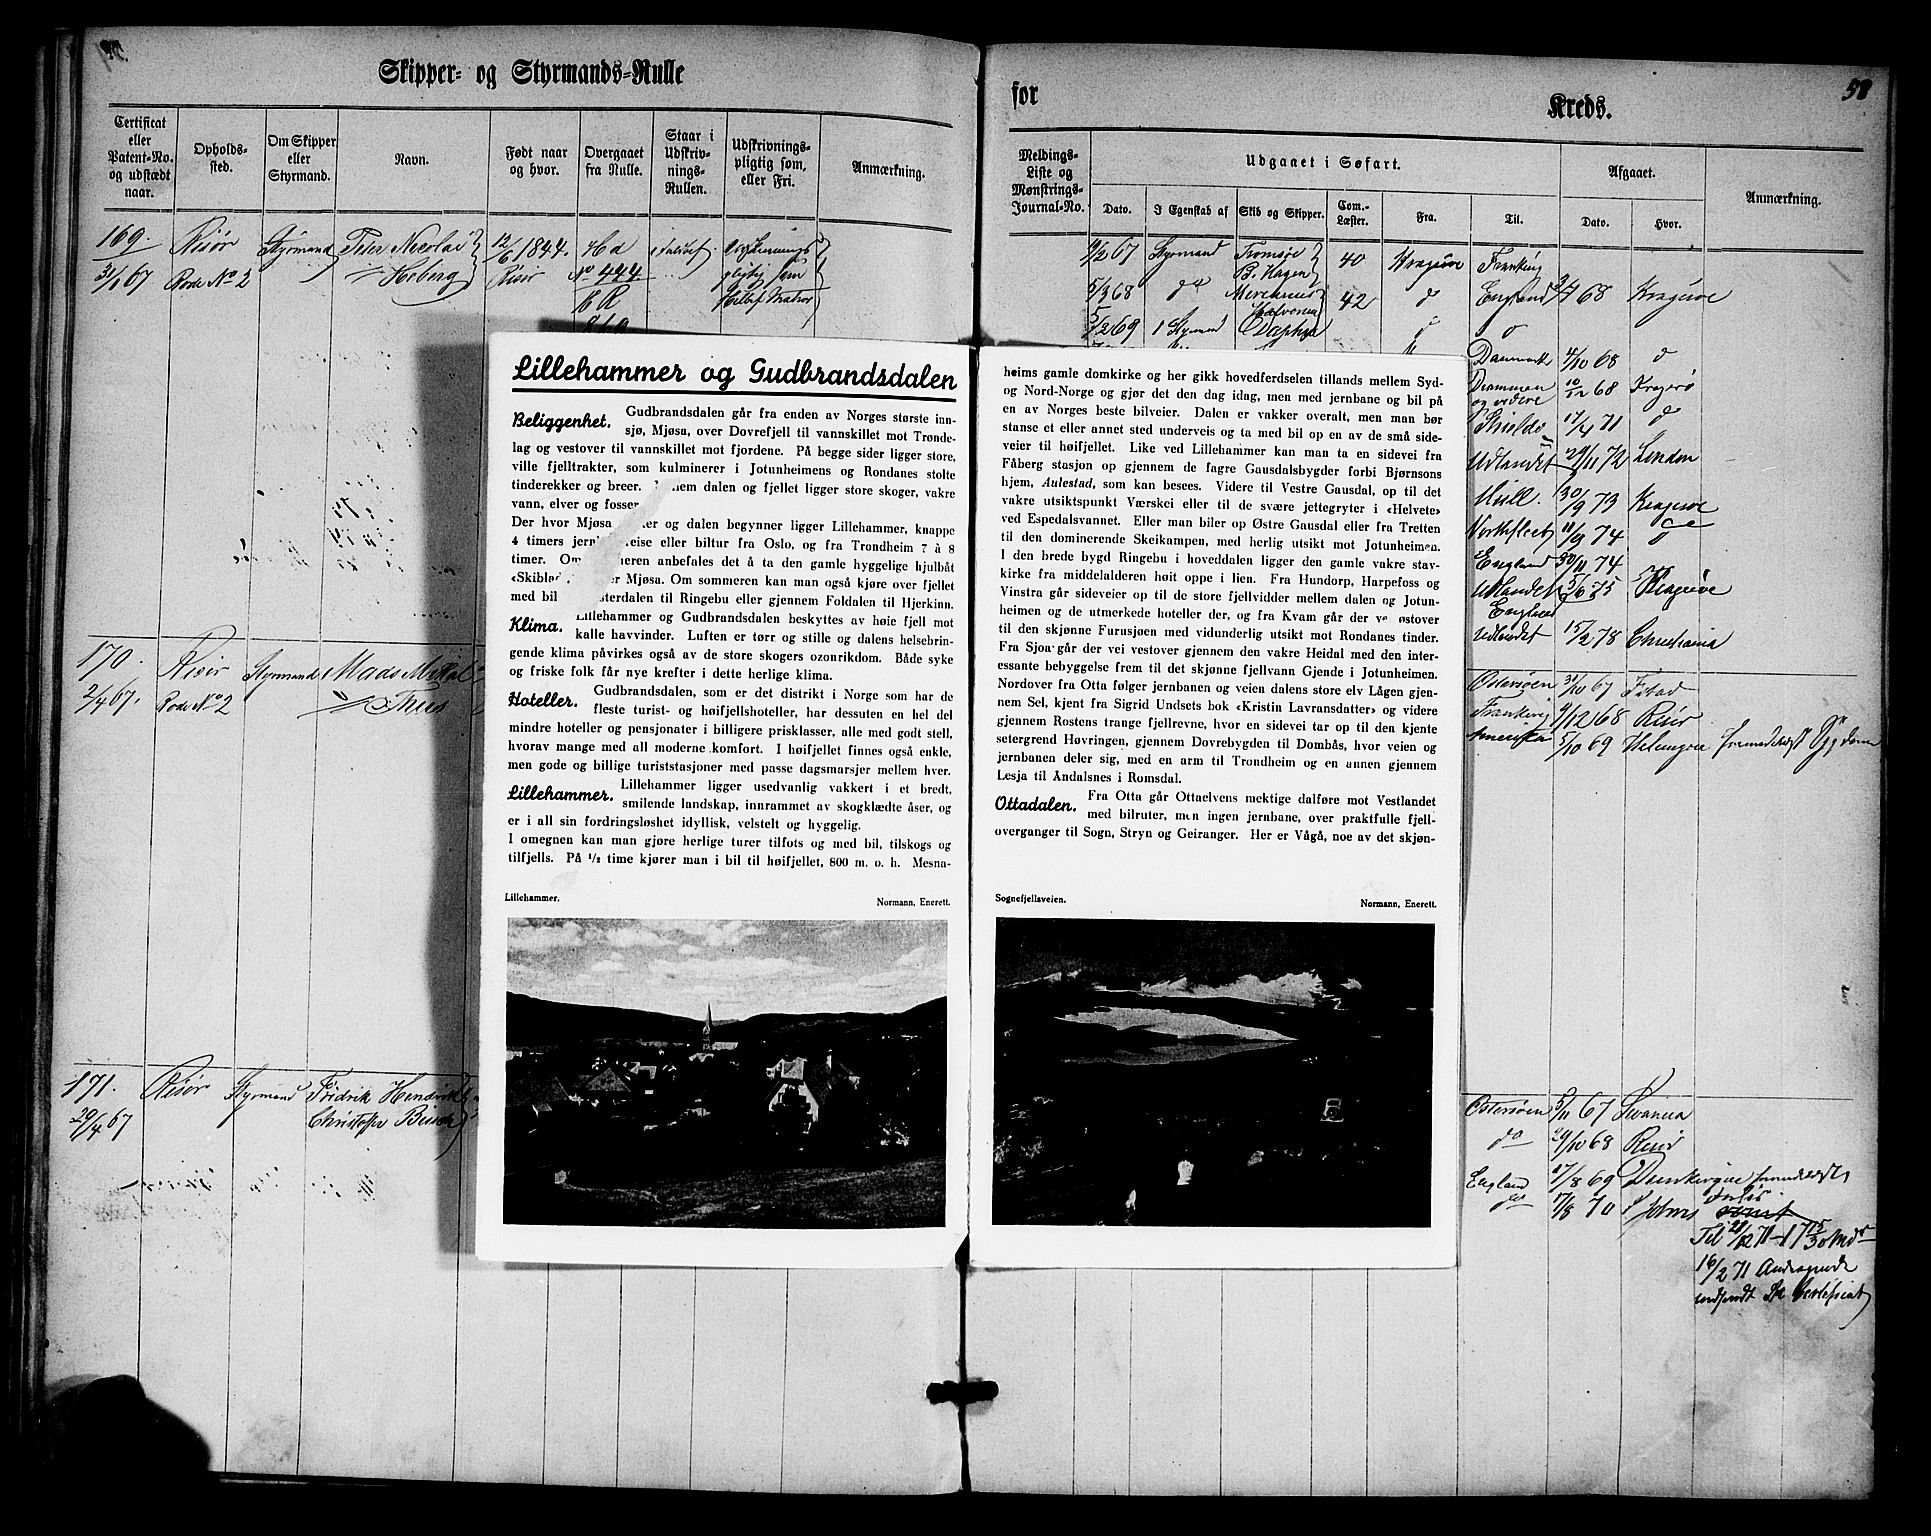 Skipper- og Styrmands-Rulle
for
Kreds.
58
Certificat eller Patent-No. og udstædt naar.
Opholds-sted.
Om Skipper eller Styrmand.
Navn.
Født naar og hvor.
Overgaaet fra Rulle.
Staar i Udskriv-nings-Rullen.
Udskrivnings-pligtig som, eller Fri.
Anmærkning.
Meldings-Liste og Mønstrings-Journal-No.
Udgaaet i Søfart.
Afgaaet.
Anmærkning.
Dato.
I Egenskab af
Skib og Skipper.
Com.-Læster.
Fra.
Til.
Dato.
Hvor.
169. Risør Styrmand Peter Nicolai 12/6 1844.
31/1 67 Rode No 2 Risør No 444
9/2 67 Styrmand Tromsøe 40 Kragerøe
B. Hagen
5/3 68 do 42 d England 68 Kragerøe
5/2 69 1 Daphne d d
Danmark 4/10 68 d
Drammen 10/12 68 Kragerø
og videre
17/4 71 d
Udlandet 29/11 72 London
30/9 73 Kragerøe
11/9 74
England 30/11 74
Udlandet 5/6 75 Kragerøe
England
Udlandet 15/2 78 Christiania
170. Risør Styrmand Mads
2/4 67. Rode No 2 Thies
Østersøen 31/10 67 Ystad
9/12 68 Risør
5/10 69
171. Risør Styrmand Fridrik Hendrik
29/4 67
Christofer
Østersøen 5/11 67
do 29/10 68 Risør
England 17/8 69
do 17/8 70
Til
16/2 71 Andragende
Lillehammer og Gudbrandsdalen
Beliggenhet. Gudbrandsdalen går fra enden av Norges største inn-
sjø, Mjøsa, over Dovrefjell til vannskillet mot Trønde-
lag og vestover til vannskillet mot fjordene. På begge sider ligger store,
ville fjelltrakter, som kulminerer i Jotunheimens og Rondanes stolte
tinderekker og breer. dalen og fjellet ligger store skoger, vakre
vann, elver og fosser
Der hvor Mjøsa og dalen begynner ligger Lillehammer, knappe
4 timers eller biltur fra Oslo, og fra Trondheim 7 à 8
timer. anbefales det å ta den gamle hyggelige hjulbåt
«Skiblad Mjøsa. Om sommeren kan man også kjøre over fjellet
med bil til Ringebu eller gjennem Foldalen til Hjerkinn.
Klima. Lillehammer og Gudbrandsdalen beskyttes av høie fjell mot
kalle havvinder. Luften er tørr og stille og dalens helsebrin-
gende klima påvirkes også av de store skogers ozonrikdom. Både syke
og friske folk får nye krefter i dette herlige klima.
Hoteller. Gudbrandsdalen, som er det distrikt i Norge som har de
fleste turist- og høifjellshoteller, har dessuten en hel del
mindre hoteller og pensjonater i billigere prisklasser, alle med godt stell,
hvorav mange med all moderne komfort. I høifjellet finnes også enkle,
men gode og billige turiststasjoner med passe dagsmarsjer mellem hver.
Lillehammer. Lillehammer ligger usedvanlig vakkert i et bredt,
smilende landskap, innrammet av skogklædte åser, og
er i all sin fordringsløshet idyllisk, velstelt og hyggelig.
I omegnen kan man gjøre herlige turer tilfots og med bil, tilskogs og
tilfjells. På 1/2 time kjører man i bil til høifjellet, 800 m. o. h. Mesna-
Lillehammer.
Normann, Enerett.
heims gamle domkirke og her gikk hovedferdselen tillands mellem Syd-
og Nord-Norge og gjør det den dag idag, men med jernbane og bil på
en av Norges beste bilveier. Dalen er vakker overalt, men man bør
stanse et eller annet sted underveis og ta med bil op en av de små side-
veier til høifjellet. Like ved Lillehammer kan man ta en sidevei fra
Fåberg stasjon op gjennem de fagre Gausdalsbygder forbi Bjørnsons
hjem, Aulestad, som kan besees. Videre til Vestre Gausdal, op til det
vakre utsiktspunkt Værskei eller til de svære jettegryter i «Helvete»
ved Espedalsvannet. Eller man biler op Østre Gausdal eller fra Tretten
til den dominerende Skeikampen, med herlig utsikt mot Jotunheimen.
I den brede bygd Ringebu i hoveddalen ligger den gamle vakre stav-
kirke fra middelalderen høit oppe i lien. Fra Hundorp, Harpefoss og
Vinstra går sideveier op til de store fjellvidder mellem dalen og Jotun-
heimen og de utmerkede hoteller der, og fra Kvam går der ve ostover
til den skjønne Furusjøen med vidunderlig utsikt mot Rondanes tinder.
Fra Sjoa går der vei vestover gjennem den vakre Heidal med den inter-
essante bebyggelse frem til det skjønne fjellvann Gjende i Jotunheimen.
Nordover fra Otta følger jernbanen og veien dalens store elv Lågen gjen-
nem Sel, kjent fra Sigrid Undsets bok «Kristin Lavransdatter» og videre
gjennem Rostens trange fjellrevne, hvor en sidevei tar op til den kjente
setergrend Høvringen, gjennem Dovrebygden til Dombås, hvor veien og
jernbanen deler sig, med en arm til Trondheim og en annen gjennem
Lesja til Åndalsnes i Romsdal.
Ottadalen. Fra Otta går Ottaelvens mektige dalføre mot Vestlandet
med bilruter, men ingen jernbane, over praktfulle fjell-
overganger til Sogn, Stryn og Geiranger. Her er Vågå, noe av det skjøn-
Sognefjellsveien.
Normann, Enerett.